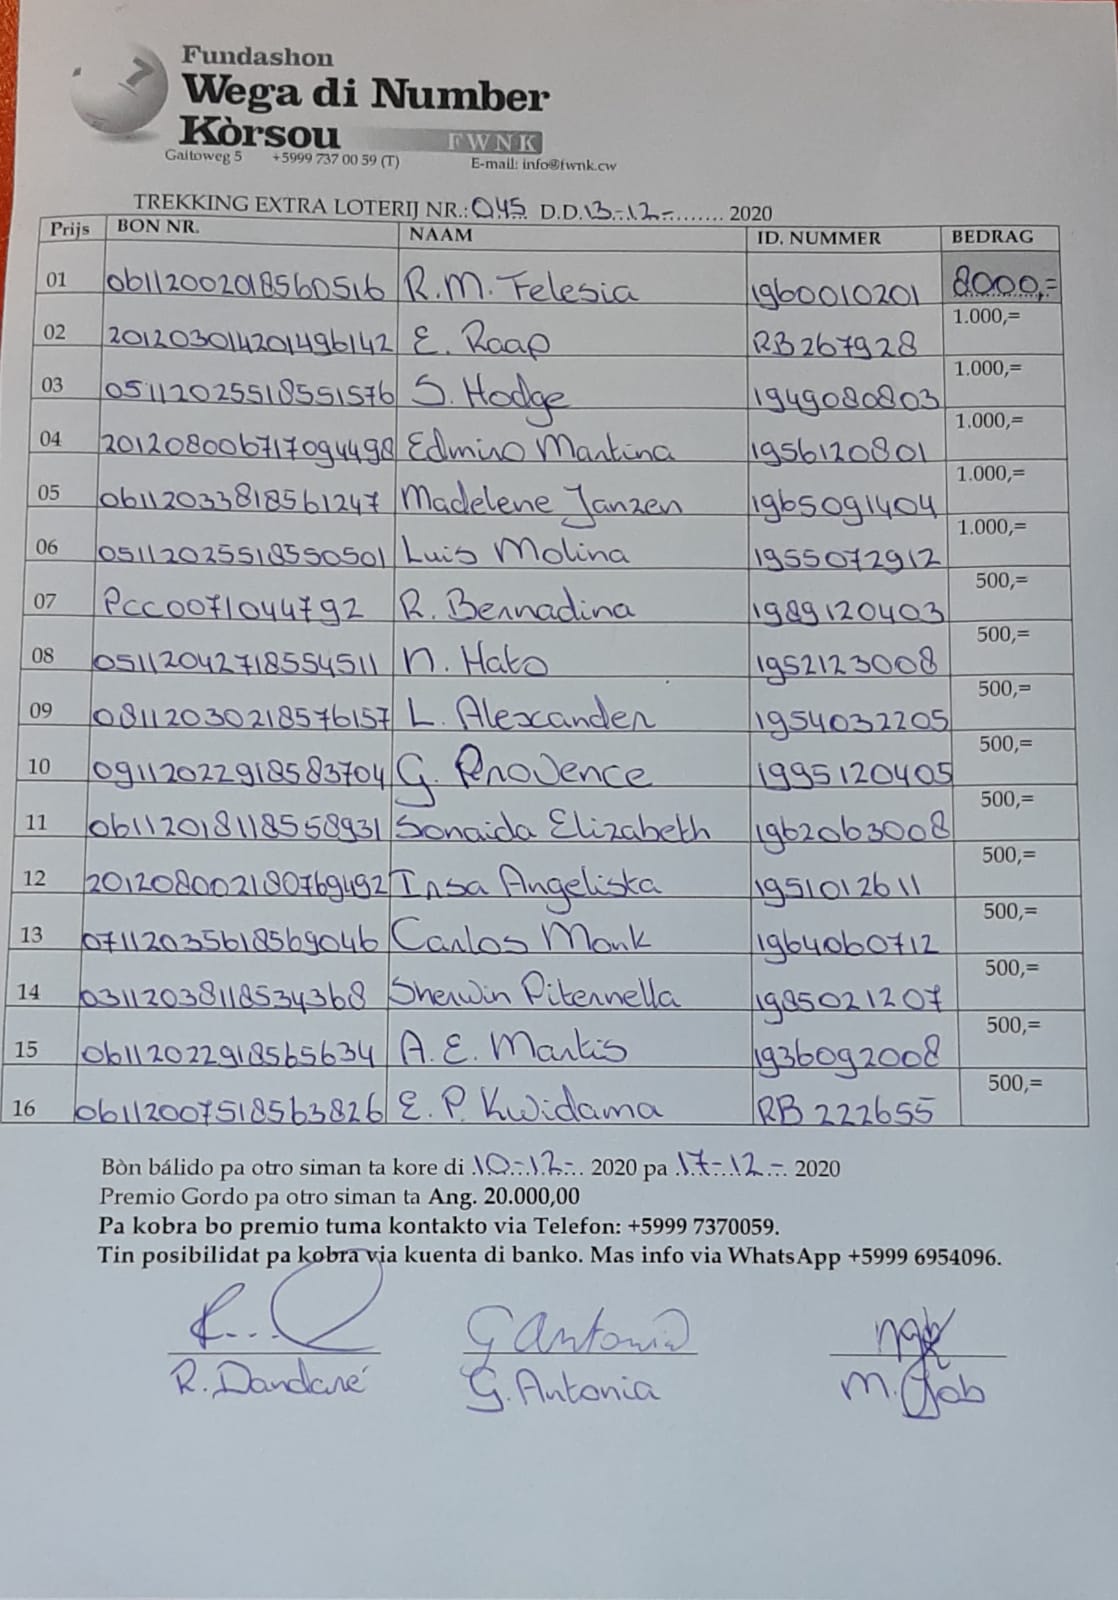 Fundashon
Wega di Number
Kòrsou FWNK
Gaitoweg 5 +5999 737 00 59 (T) E-mail: info@fwnk.cw
TREKKING EXTRA LOTERIJ NR.: 045 D.D. 13-12- 2020
Prijs BON NR. NAAM ID. NUMMER BEDRAG
01 06112002018560516 R.M. Felesia 1960010201 8000,=
02 201203014201496142 E. Raap RB267928 1.000,=
03 05112025518551576 S. Hodge 1949080803 1.000,=
04 201208006717094498 Edmiro Martina 1956120801 1.000,=
05 06112033818561247 Madelene Janzen 1965091404 1.000,=
06 05112025518550501 Luis Molina 1955072912 1.000,=
07 PCC0071044792 R. Bernadina 1989120403 500,=
08 05112042718554511 N. Hato 1952123008 500,=
09 08112030218576157 L. Alexcander 1954032205 500,=
10 09112022918583704 G. Provence 1995120405 500,=
11 06112018118558931 Sonaida Elizabeth 1962063008 500,=
12 201208002180769492 Irsa Angelista 1951012611 500,=
13 07112035618569046 Carlos Monk 1964060712 500,=
14 03112038118534368 Sherwin Piternella 1985021207 500,=
15 06112022918565634 A. E. Martis 1936092008 500,=
16 06112007518563826 E. P. Kwidama RB 222655 500,=
Bòn bálido pa otro siman ta kore di 10-12- 2020 pa 17-12- 2020
Premio Gordo pa otro siman ta Ang. 20.000,00
Pa kobra bo premio tuma kontakto via Telefon: +5999 7370059.
Tin posibilidat pa kobra via kuenta di banko. Mas info via WhatsApp +5999 6954096.
G Antonia
R. Dandaré G. Antonia M. Job